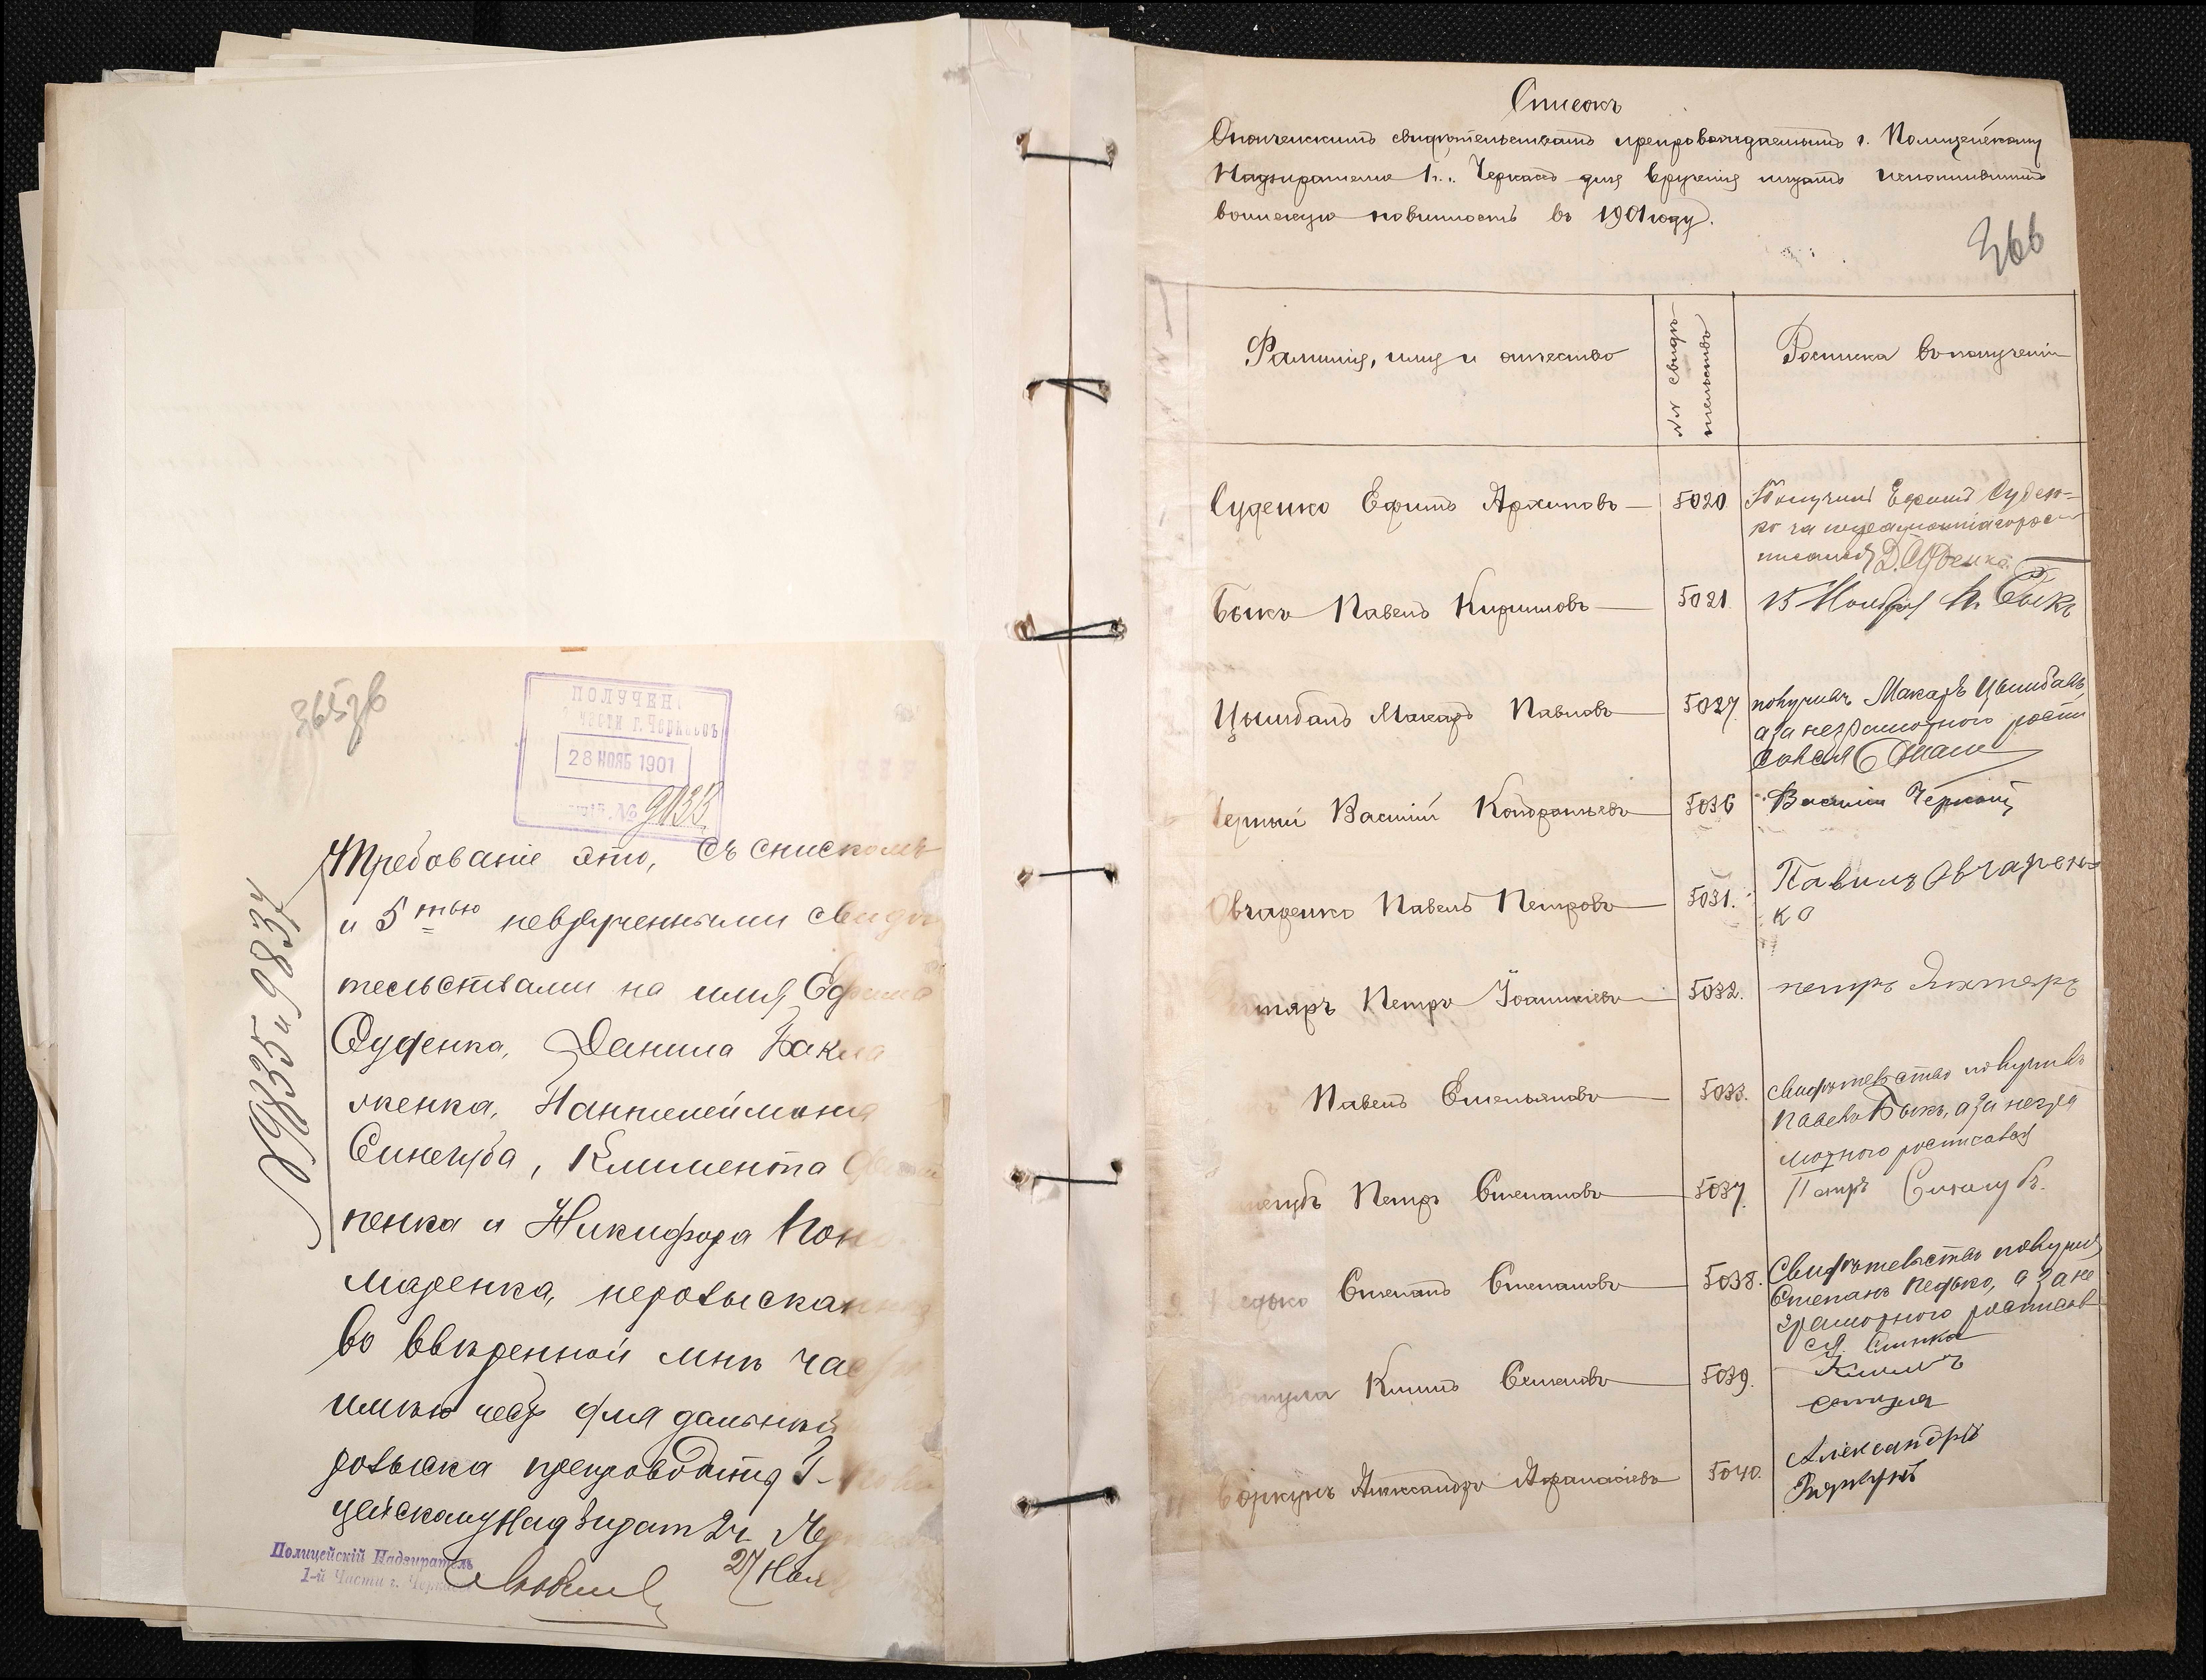 365 зв
ПОЛУЧЕН
части г. Черкассъ
28 НОЯБ 1901
№ 9133
№ 9835 и 9837
Требованіе это, съ спискомъ
и 5тью неврученными свидѣ
тельствами на имя Ефима
Суденка, Данила Бакла
женка, Пантелеймона
Синегуба, Климента
пенка и Никифора Поно
маренка, неровысканныхъ
во ввѣренной мнѣ час
имѣю честь для дальнѣй
розыска препроводить Г.
цейскому Надзират 2 ч.
27 Ноя
Полицейскій Надзиратель
1-й Части г. Черкассъ
Списокъ
Ополченскимъ свидѣтельствамъ препровождаемымъ г. Полицейскому
Надзирателю 1 ч. Черкасъ для врученія лицамъ исполнившимъ
воинскую повинность въ 1901 году.
366
Фамилія, имя и отчество
№№ свидѣ-
тельствъ
Росписка въ полученіи
Суденко Ефимъ Архиповъ 5020
Получилъ Ефимъ Суден-
ко за неграмотнаго рос-
писался Д. Суденко
Быкъ Павелъ Кириловъ 5021
15 Ноября П. Быкъ
Цымбалъ Макаръ Павловъ 5027
получилъ Макаръ Цымбалъ,
а за неграмотного роспи
сался
Черный Василій Кондратьевъ 5036
Василій Черный
Овчаренко Павелъ Петровъ 5031.
Павилъ Овчарен-
ко
тяръ Петръ Іоаникіевъ 5032.
петръ Дихтяръ
Павелъ Емельяновъ 5033.
свидѣтельство получилъ
Павелъ Быкъ, а за негра
мотного росписался
негубъ Петръ Степановъ 5037.
Петръ Синегубъ.
9. Редько Степанъ Степановъ 5038.
Свидѣтельство получил
Степанъ Редько, а за не
грамотного росписав
ся
Климъ Семеновъ 5039.
Климъ
11 Боркунъ Александръ Афанасіевъ 5040.
Александръ
Боркунъ